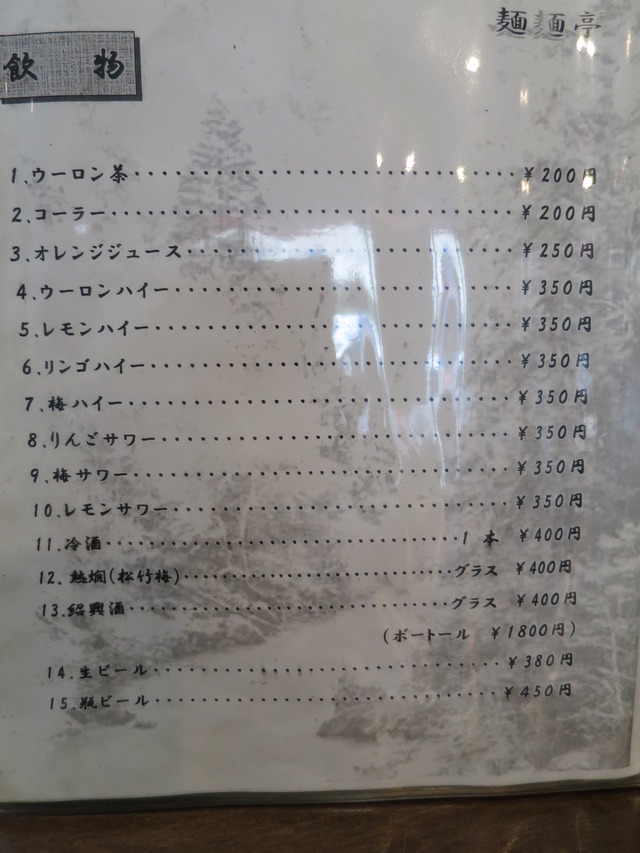 麺麺亭
飲 物
1.ウーロン茶・・・・・・・・・・・・・・・・・・・・・・・・・・・・・・¥200円
2.コーラー・・・・・・・・・・・・・・・・・・・・・・・・・・・・・・¥200円
3.オレンジジュース・・・・・・・・・・・・・・・・・・・・・・・・・・¥250円
4.ウーロンハイー・・・・・・・・・・・・・・・・・・・・・・・・・・・¥350円
5.レモンハイー・・・・・・・・・・・・・・・・・・・・・・・・・・・・¥350円
6.リンゴハイー・・・・・・・・・・・・・・・・・・・・・・・・・・・・¥350円
7.梅ハイー・・・・・・・・・・・・・・・・・・・・・・・・・・・・・・¥350円
8.りんごサワー・・・・・・・・・・・・・・・・・・・・・・・・・・・・¥350円
9.梅サワー・・・・・・・・・・・・・・・・・・・・・・・・・・・・・・¥350円
10.レモンサワー・・・・・・・・・・・・・・・・・・・・・・・・・・・¥350円
11.冷酒・・・・・・・・・・・・・・・・・・・・・・・・・・・・1 本 ¥400円
12.熱燗(松竹梅)・・・・・・・・・・・・・・・・・・・・・・グラス ¥400円
13.紹興酒・・・・・・・・・・・・・・・・・・・・・・・・・・グラス ¥400円
(ボートール ¥1800円)
14.生ビール・・・・・・・・・・・・・・・・・・・・・・・・・・・・・¥380円
15.瓶ビール・・・・・・・・・・・・・・・・・・・・・・・・・・・・・¥450円